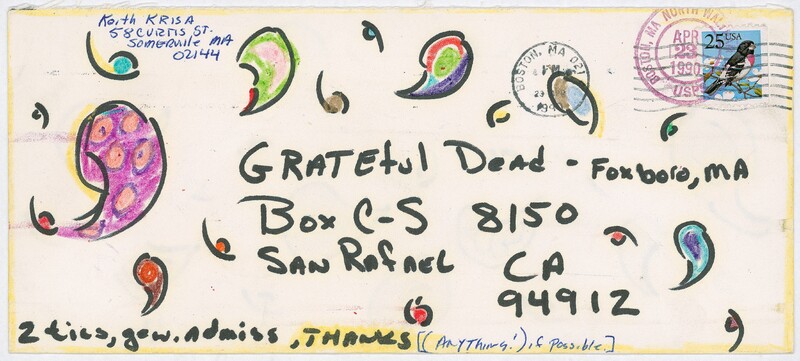 Keith KRISA
58 CURTIS ST.
SOMERVILLE MA
02144
BOSTON, MA 021
PM
1990
BOSTON, MA NORTH
APR
23
1990
USPS
25 USA
GRATEful Dead - Foxboro, MA
Box C-S 8150
SAN RAfAEL CA
94912
2 tics, gen. Admiss, THANKS [(ANYTHING!), if possible.]